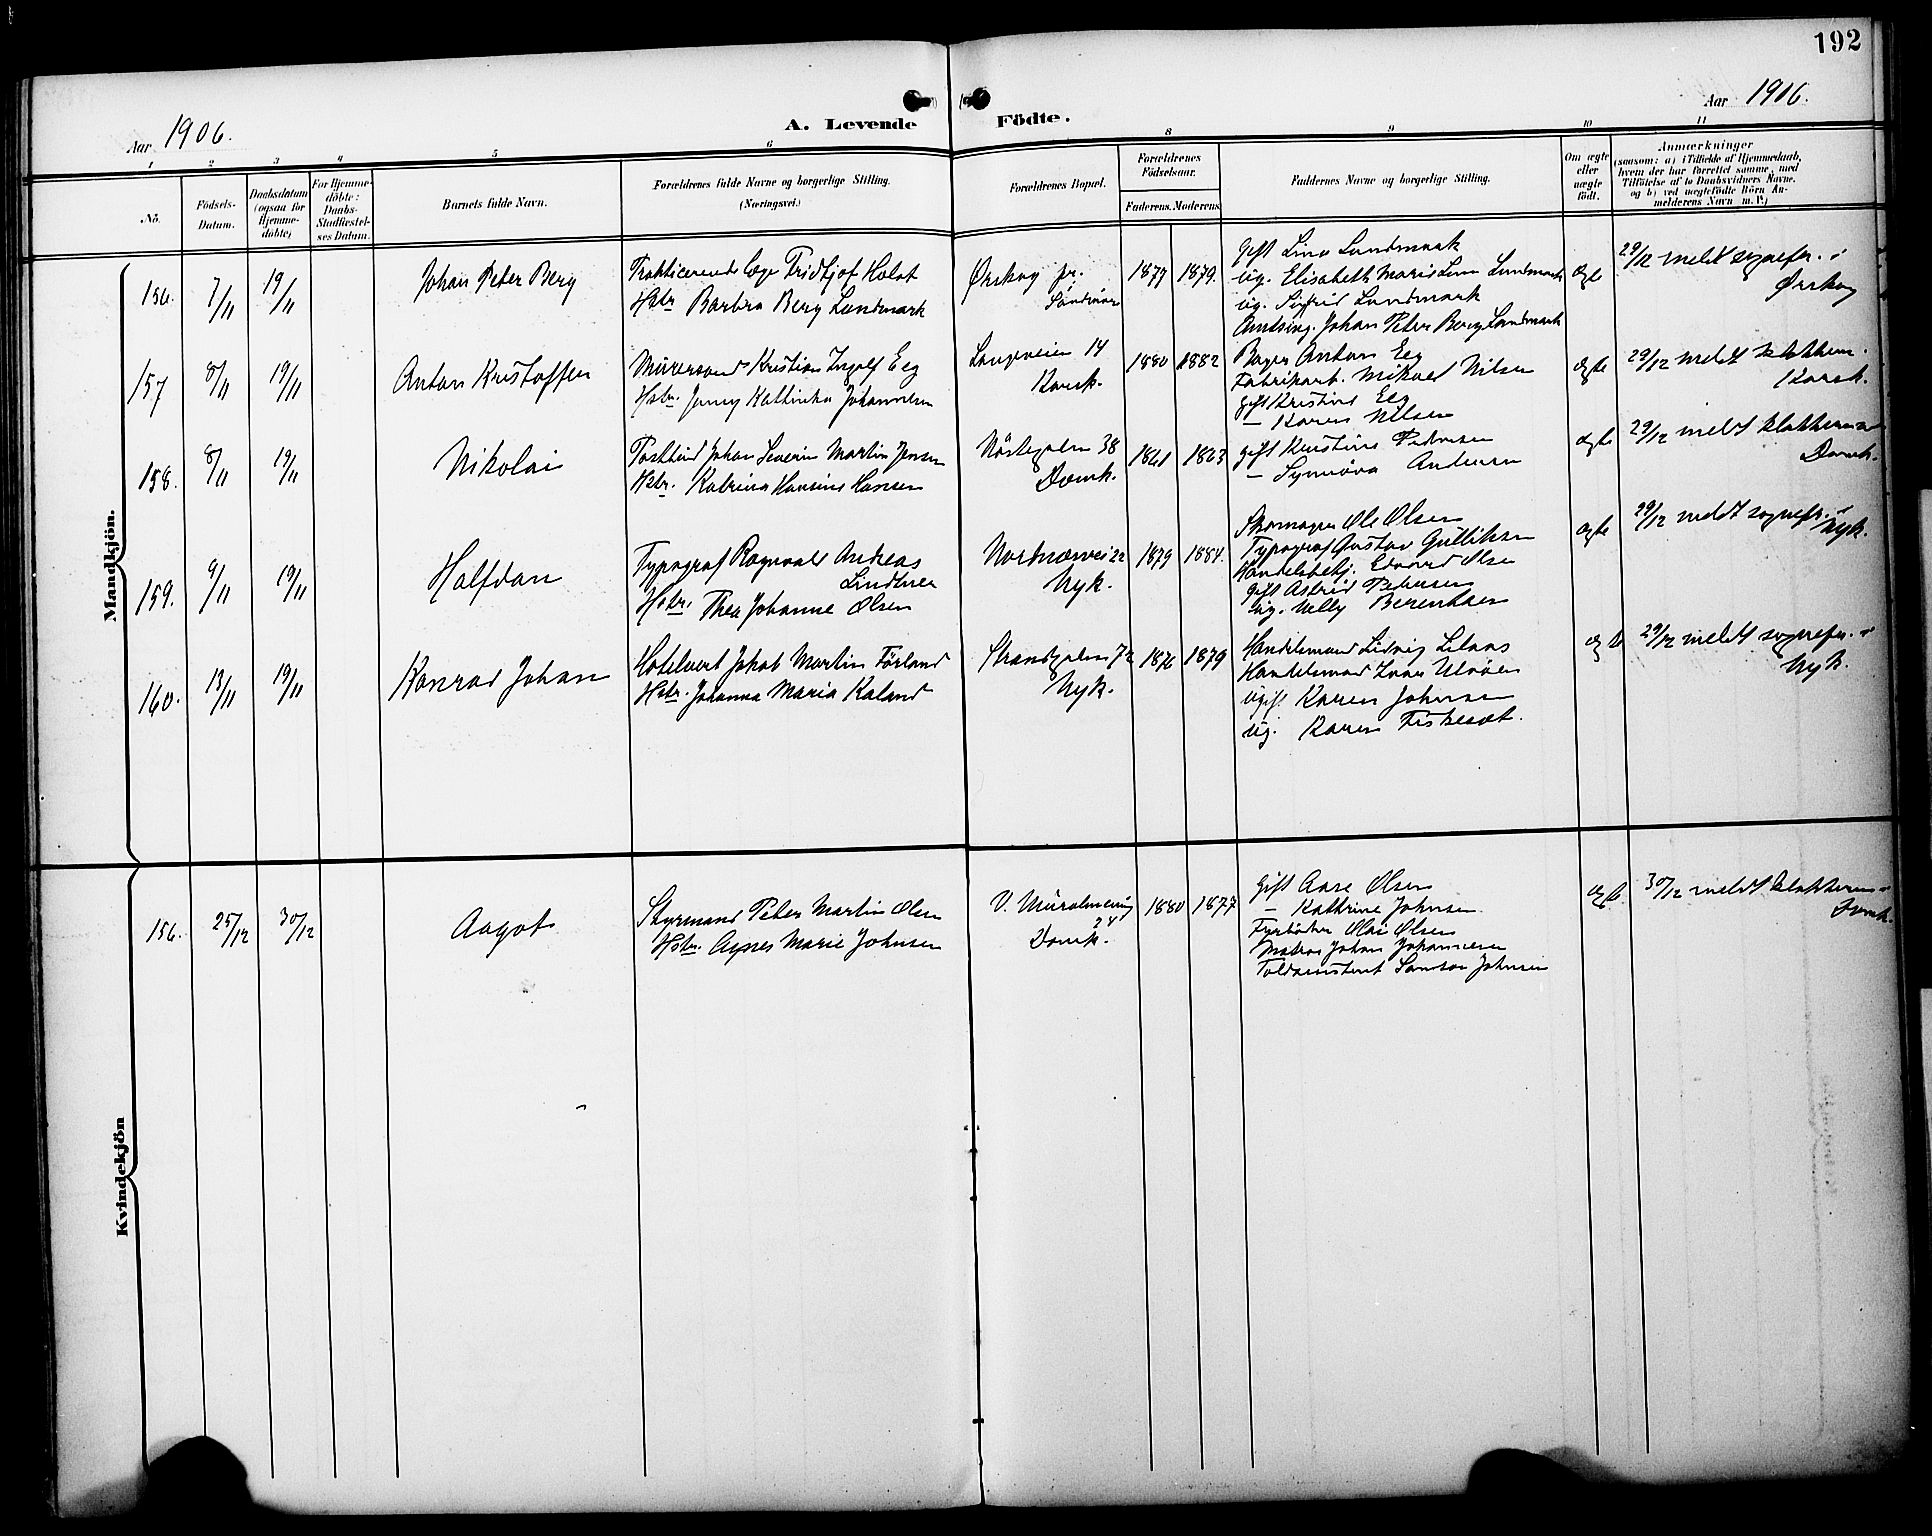 192
Aar 1906.
A. Levende Födte.
Aar 1906.
1
2
3
4
5
6
8
9
10
11
No.
Födsels-Datum.
Daabsdatum (ogsaa for Hjemmedöbte)
For Hjemmedöbte: Daabs-Stadfæstelses Datum.
Barnets fulde Navn.
Forældrenes fulde Navne og borgerlige Stilling.
(Næringsvei.)
Forældrenes Bopæl.
Forældrenes Födselsaar.
Faderens. Moderens.
Faddernes Navne og borgerlige Stilling.
Om ægte eller uægte födt.
Anmærkninger
(saasom: a) i Tilfælde af Hjemmedaab, hvem der har forrettet samme, med Tilföielse af to Daabsvidners Navne. og b) ved uægtefödte Börn Anmelderens Navn m. V.)
Mandkjön.
156. 7/11 19/11 Johan Peter Berg
Praktiserende Læge Fridtjof Holst
Hstr Barbra Berg Landmark
Ørskog pr.
Söndmör
1877 1879.
Gift Lina Landmark
ug. Elisabeth Marie Lem Landmark
ug. Sigfrid Landmark
Amtsing. Johan Peter Berg Landmark
ægte
29/12 meldt sognepr. i
Ørskog
157 8/11 19/11 Anton Kristoffer
Murersvend Kristian Ingolf Eeg
Hstr. Jenny Kathinka Johannesen
Langveien 14
Korsk.
1880 1882
Bager Anton Eeg
Fabrikarb. Mikael Nilsen
gift Kristine Eeg
— Karen Nilsen
ægte
29/12 meldt klokkern.
Korsk.
158. 8/11 19/11 Nikolai
Postbud Johan Severin Martin Jensen
Hstr. Katrina Hansine Hansen
Nöstegaten 38
Domk.
1861 1863
gift Kristine Pedersen
— Synnöva Andersen
ægte
29/12 meldt klokkeren
Domk.
159. 9/11 19/11 Halfdan
Typograf Ragnvald Andreas
Lindtner
Hstr. Thea Johanne Olsen
Nordnæsvei 22
Nyk.
1879 1884.
Skomager Ole Olsen
Typograf Gustav Gulliksen
Handelsbetj. Edvard Olsen
gift Astrid Petersen
ug. Nelly Berentsen
ægte
29/12 meldt sognepr. i
Nyk.
160. 13/11 19/11 Konrad Johan
Hotelvert Jakob Martin Förland
Hstr. Johanna Maria Kaland
Strandgaten 72
Nyk.
1876 1879
Handelsmand Ludvig
Handelsmand Ivar Ulvöen
ugift Karen Johnsen
ug. Karen Fiskeset.
ægte
29/12 meldt sognepr. i
Nyk.
Kvindekjön
156. 25/12 30/12 Aagot
Styrmand Peter Martin Olsen
Hstr. Agnes Marie Johnsen
V. Muralmening
24
Domk.
1880 1877
gift Aase Olsen
— Kathrine Johnsen
Fyrböter Olai Olsen
Matros Johan Johannesen
Toldassistent Samson Johnsen
ægt.
30/12 meldt klokkeren i
Domk.